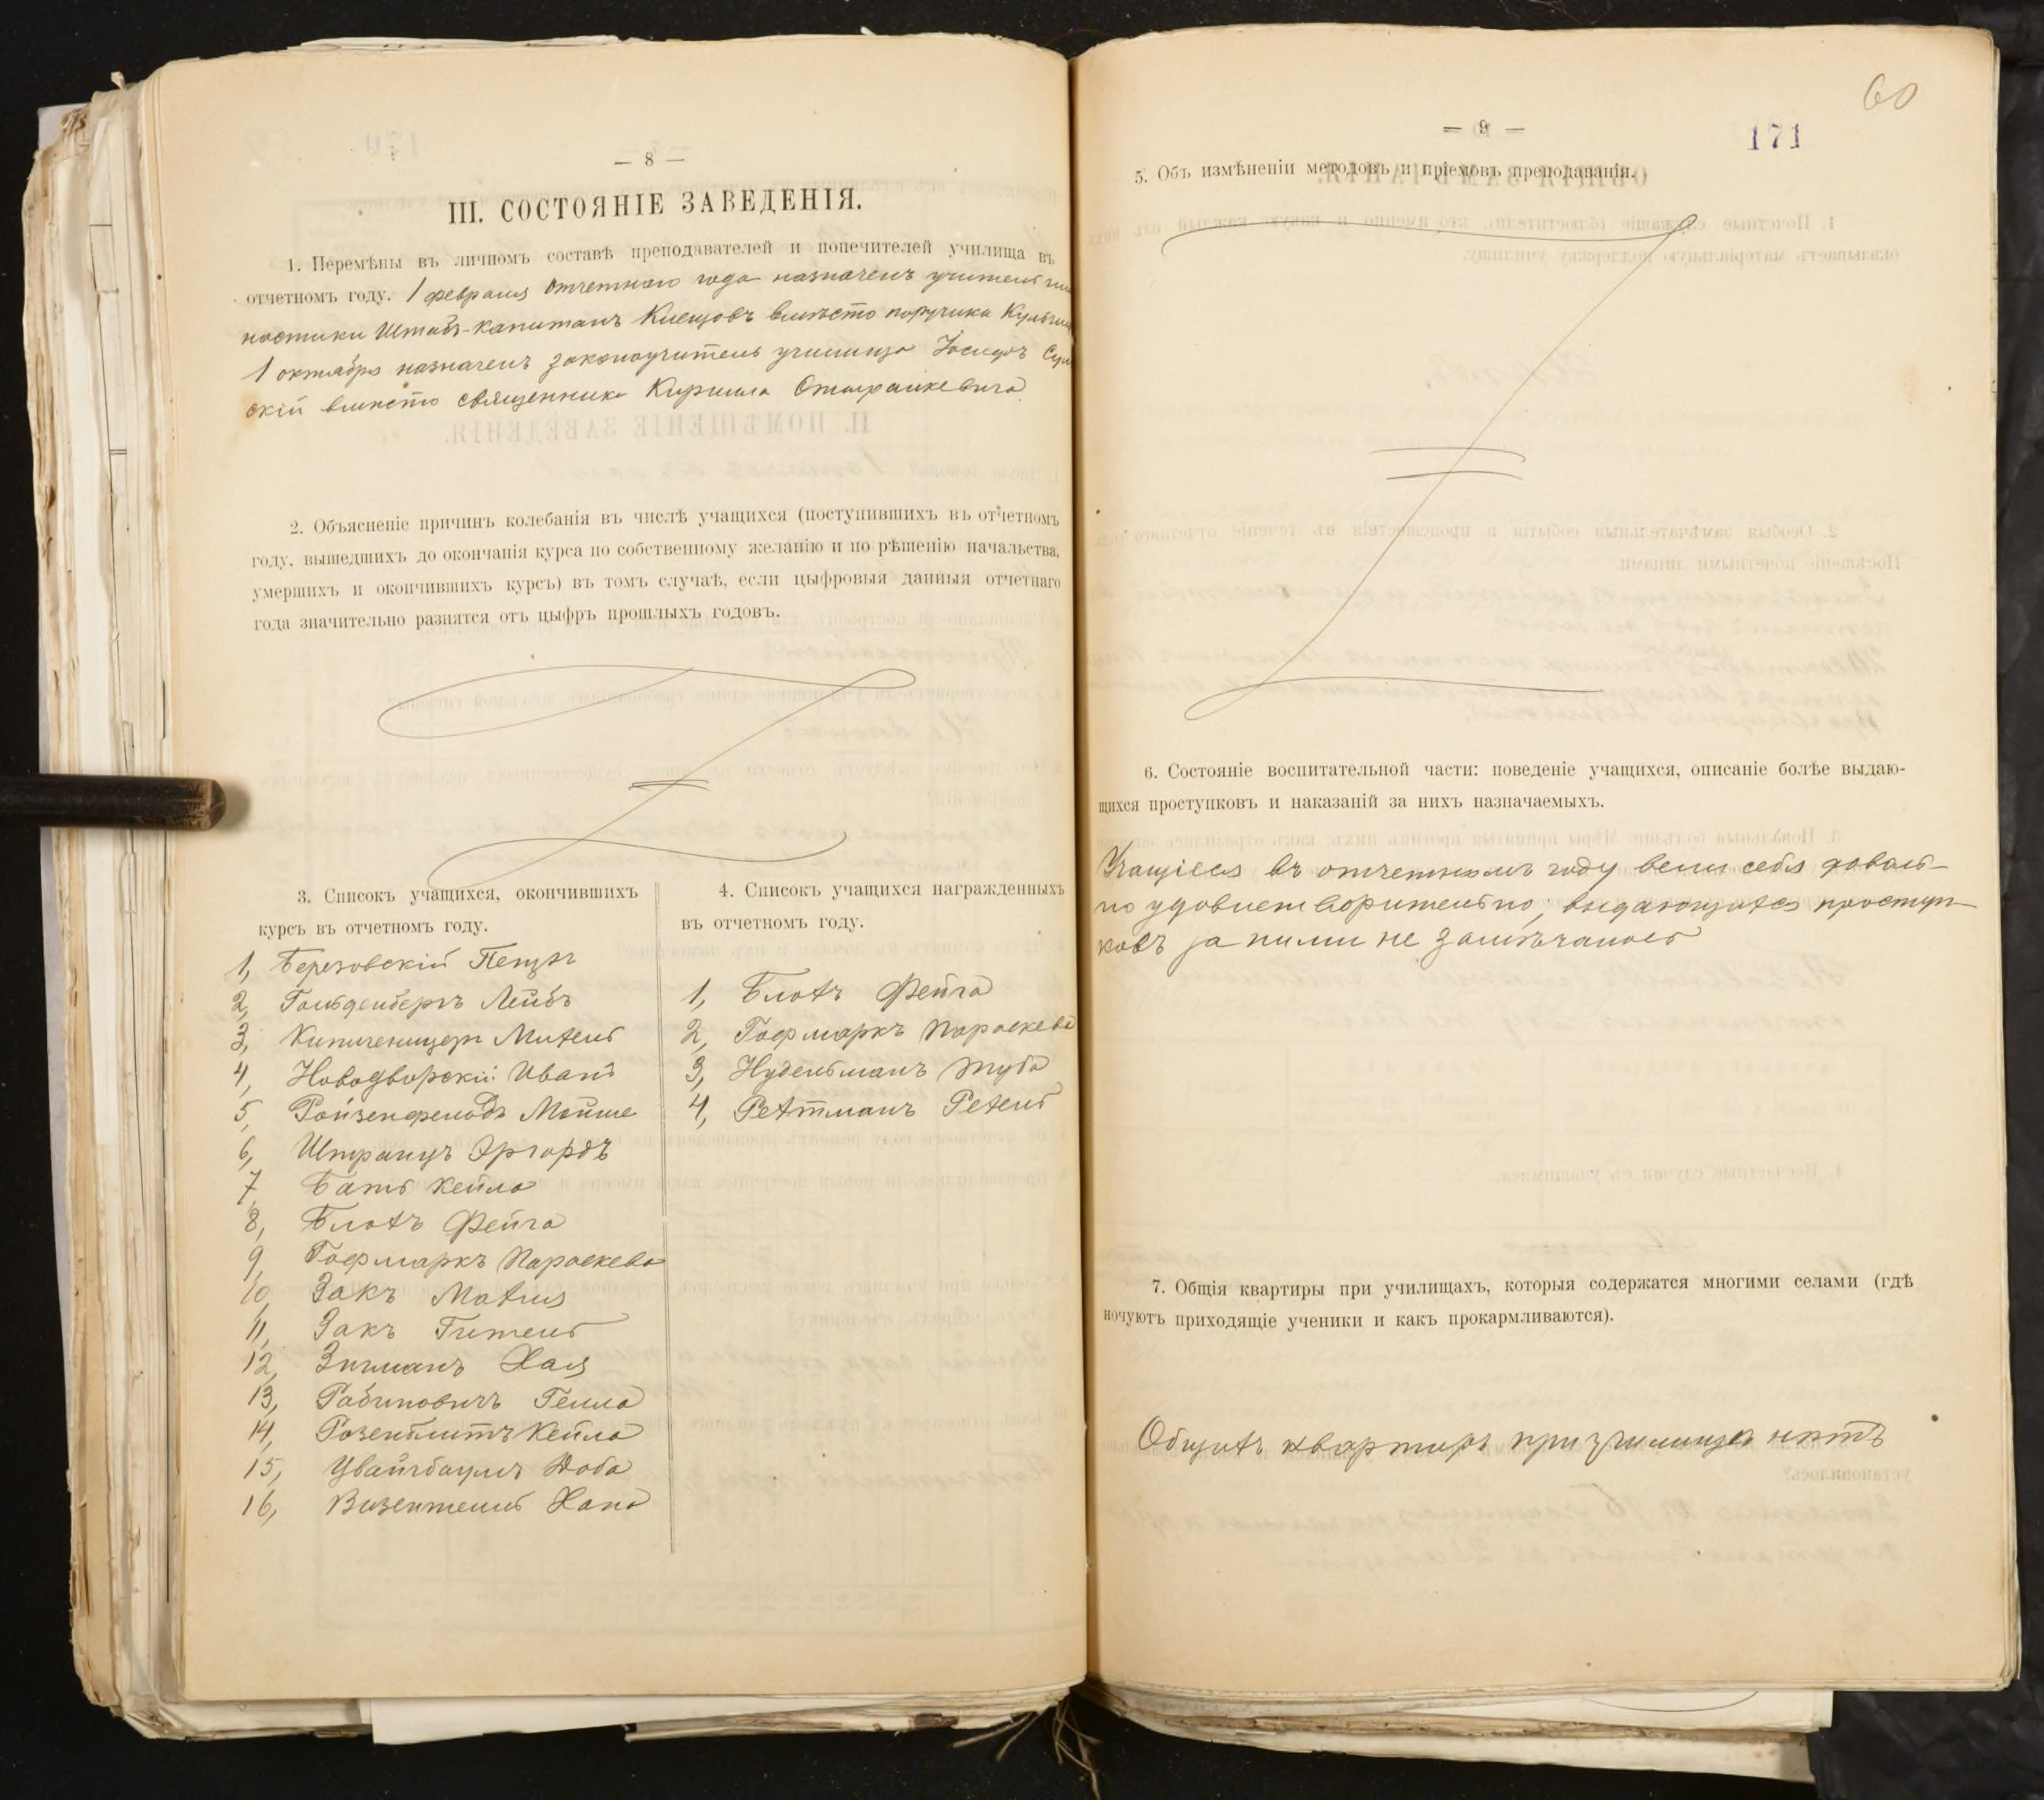 — 8 —
III. СОСТОЯНІЕ ЗАВЕДЕНІЯ.
1. Перемѣны въ личномъ составѣ преподавателей и попечителей училища въ
отчетномъ году. 1 февраля отчетнаго года назначенъ учитель
настики Штабъ-капитанъ Клещовъ вмѣсто поручика
1 октября назначенъ законоучитель училища
скій вмѣсто священника Кирилла
2. Объясненіе причинъ колебанія въ числѣ учащихся (поступившихъ въ отчетномъ
году, вышедшихъ до окончанія курса по собственному желанію и по рѣшенію начальства,
умершихъ и окончившихъ курсъ) въ томъ случаѣ, если цыфровыя данныя отчетнаго
года значительно разнятся отъ цыфръ прошлыхъ годовъ.
3. Списокъ учащихся, окончившихъ
курсъ въ отчетномъ году.
1, Березовскій
2, Гольденбергъ Лейбъ
3, Михель
4, Новодворскій Иванъ
5, Ройзенфельдъ Мойше
6, Штранцъ
7, Бать Кейла
8, Блохъ Фейга
9, Гофмаркъ Параскева
10, Закъ Махля
11, Закъ Гитель
12, Зигманъ Хая
13, Рабиновичъ Гелла
14, Розенблитъ Кейла
15, Цвайгбаумъ Доба
16, Визентель Хана
4. Списокъ учащихся награжденныхъ
въ отчетномъ году.
1, Блохъ Фейга
2, Гофмаркъ Параскева
3, Нудельманъ Туба
4, Рехтманъ Рехель
60
— 9 —
171
5. Объ измѣненіи методовъ и пріемовъ преподаванія.
6. Состояніе воспитательной части: поведеніе учащихся, описаніе болѣе выдаю-
щихся проступковъ и наказаній за нихъ назначаемыхъ.
Учащіеся въ отчетномъ году вели себя доволь-
но удовлетворительно, выдающихся проступ-
ковъ за ними не замѣчалось
7. Общія квартиры при училищахъ, которыя содержатся многими селами (гдѣ
ночуютъ приходящіе ученики и какъ прокармливаются).
Общихъ квартиръ при училищѣ нѣтъ